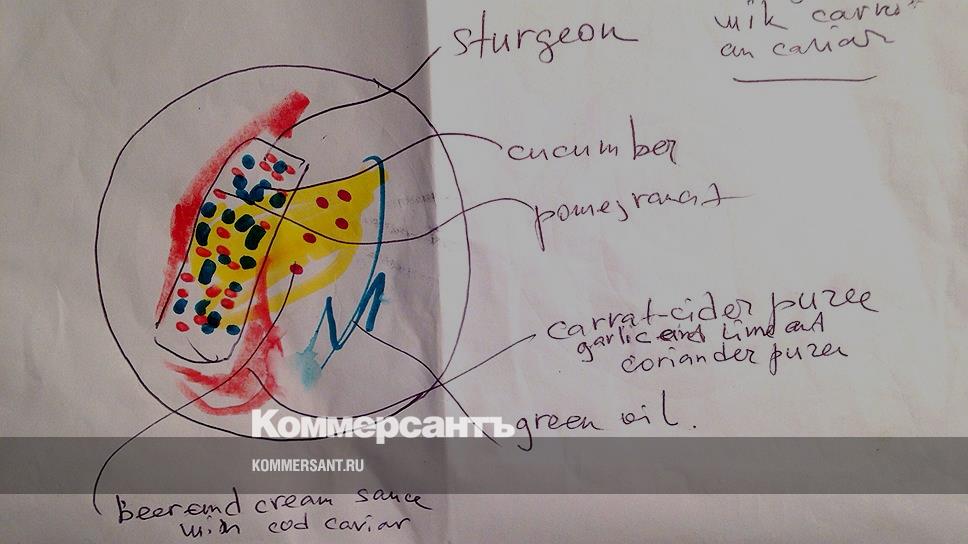 sturgeon
mik carrot
an caviar
cucumber
pomegranat
carrat-cider puree
garlic and lime out
coriander puree
green oil.
Коммерсантъ
KOMMERSANT.RU
beer and cream sauce
with cod caviar